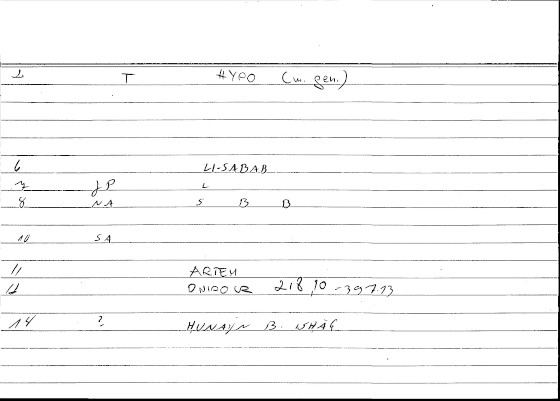 2 T HYPO (w. gen.)
6 LI-SABAB
7 JP L
8 NA S B B
10 SA
11 ARTEM
12 ONIROCR 218,10 - 397,13
14 ? HUNAYN B. ISHAQ